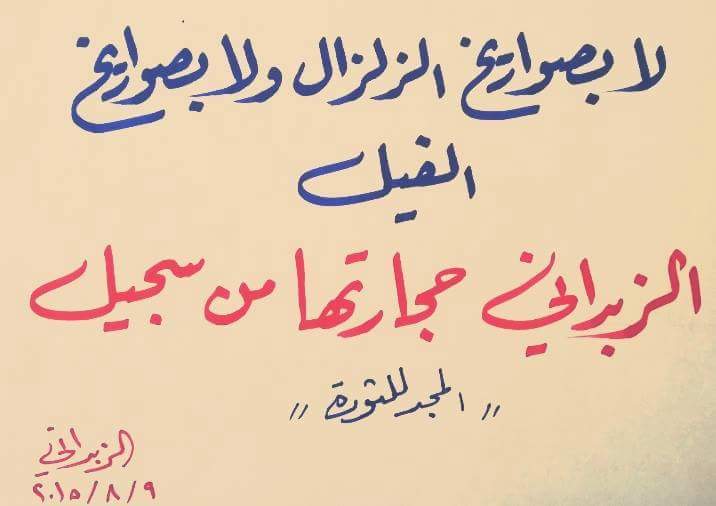 لا بصواريخ الزلزال ولا بصواريخ
الفيل
الزبداني حجارتها من سجيل
"المجد للثورة"
الزبداني
٢٠١٥/٨/٩